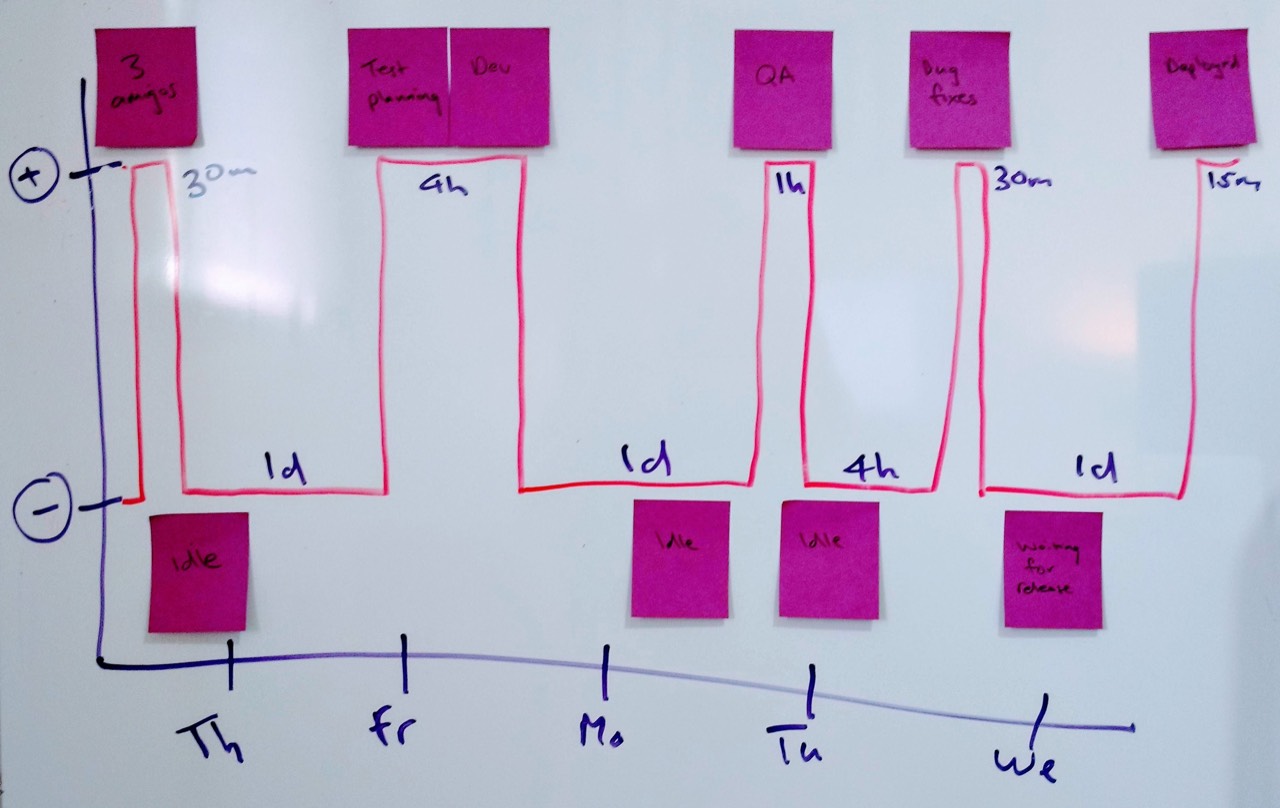 3
amigos
Test
planning
Dev
QA
Bug
fixes
Deployed
+
30m
4h
1h
30m
15m
1d
1d
4h
1d
-
Idle
Idle
Idle
Waiting
for
release
Th
Fr
Mo
Tu
We